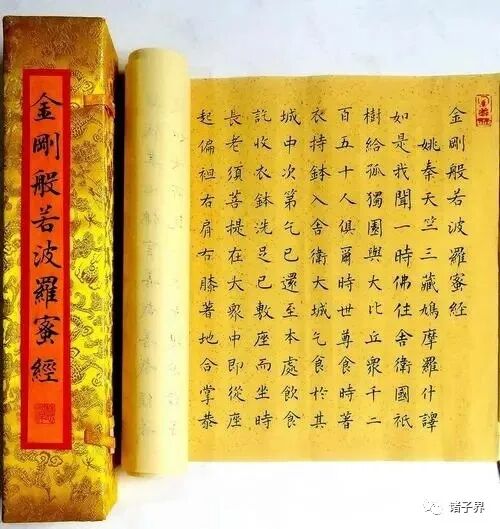 金剛般若波羅蜜經
金剛般若波羅蜜經
姚秦天竺三藏鳩摩羅什譯
如是我聞一時佛住舍衛國祇
樹給孤獨園與大比丘眾千二
百五十人俱爾時世尊食時著
衣持鉢入舍衛大城乞食於其
城中次第乞已還至本處飲食
訖收衣鉢洗足已敷座而坐時
長老須菩提在大眾中即從座
起偏袒右肩右膝著地合掌恭
诸子界